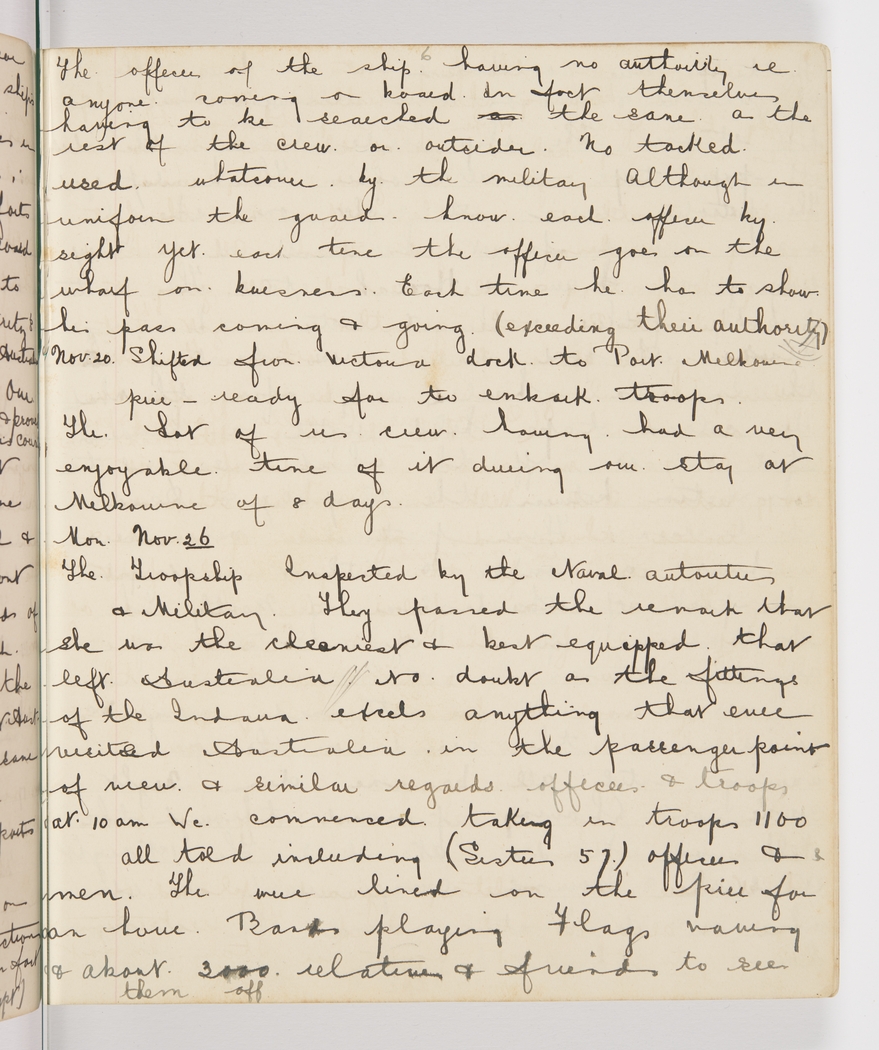 6
The officers of the ship. having no authority ie.
anyone. coming on board. In fact themselves
having to be searched as the same. as the
rest of the crew. or. outsider. No
used. whatsoever. by. the military Although in
uniform the guard. know. each. officer by.
sight yet. each time the officer goes on the
wharf on. buesness. Each time he. has to show.
his pass coming & going. (exceeding their authority)
Nov. 20. Shifted from. Victoria dock. to Port. Melbourne
pier - ready for to embark. troops.
The. lot of us. crew. having. had a very
enjoyable. time of it during our. stay at
Melbourne of 8 days.
Mon. Nov. 26
The. Troopship Inspected by the Naval. autorities
& Military. They passed the remark that
she was the cleaniest & best equipped. that
left. Australia No. doubt as the fittings
of the Indarra. excels anything that ever
visited Australia. in the passenger point
of view. & similar regards. officers & troops
at. 10 am We. commenced. taking in troops 1100
all told including (Sisters 57.) officers &
men. The were lined on the pier for
an hour. Bands playing Flags waving
& about. 3000. relatives & friends to see
them off